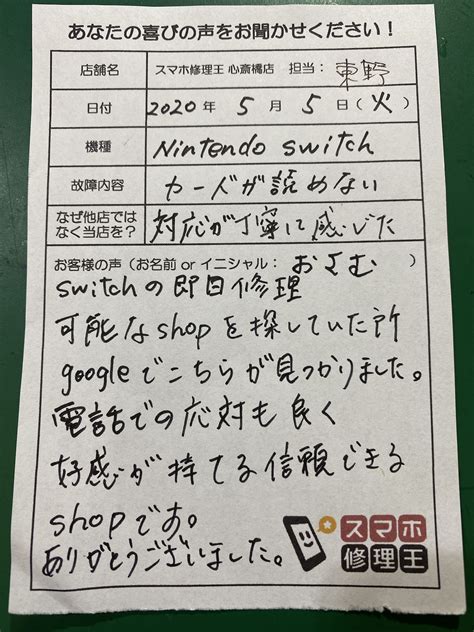 あなたの喜びの声をお聞かせください！
店舗名 スマホ修理王 心斎橋店 担当： 東野
日付 2020 年 5 月 5 日（火）
機種 Nintendo switch
故障内容 カードが読めない
なぜ他店では
なく当店を？ 対応が丁寧に感じた
お客様の声（お名前 or イニシャル： おさむ ）
switchの即日修理
可能なshopを探していた所
googleでこちらが見つかりました。
電話での応対も良く
好感が持てる信頼できる
shopです。
ありがとうございました。
スマホ
修理王